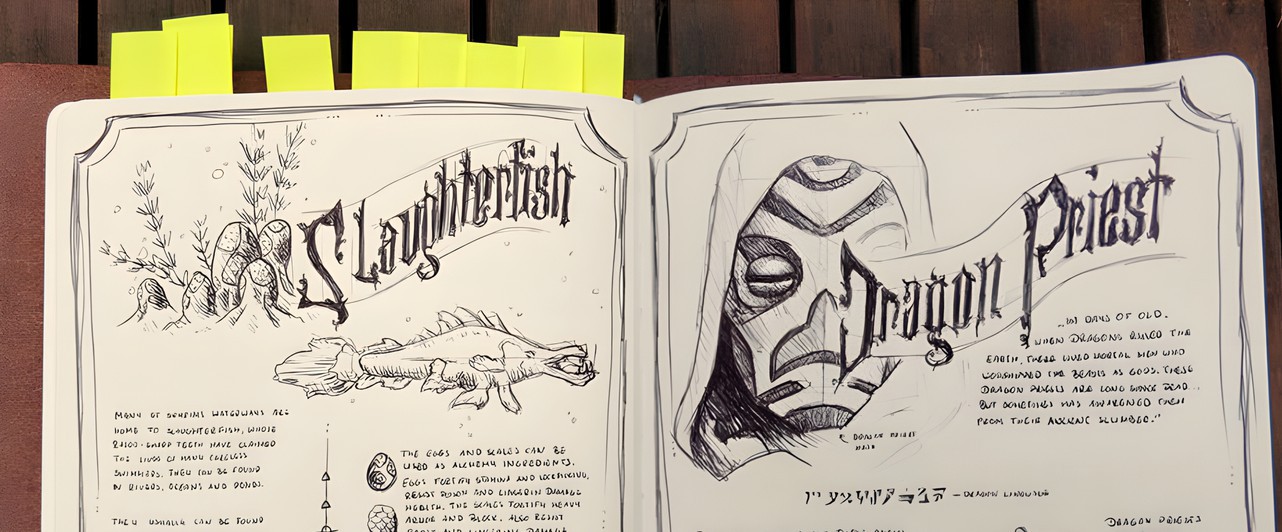 Slaughterfish
MANY OF SKYRIMS WATERWAYS ARE
HOME TO SLAUGHTERFISH, WHOSE
RAZOR-SHARP TEETH HAVE CLAIMED
THE LIVES OF MANY CARELESS
SWIMMERS. THEY CAN BE FOUND
IN RIVERS, OCEANS AND PONDS.
THEY USUALLY CAN BE FOUND
THE EGGS AND SCALES CAN BE
USED AS ALCHEMY INGREDIENTS.
EGGS FORTIFY STAMINA AND
RESIST POISON AND LINGERIN DAMAGE
HEALTH. THE SCALES FORTIFY HEAVY
ARMOR AND BLOCK. ALSO RESIST
Dragon Priest
"...IN DAYS OF OLD.
WHEN DRAGONS RULED THE
EARTH, THERE LIVED MORTAL MEN WHO
WORSHIPED THE BEASTS AS GODS. THESE
DRAGON PRIESTS ARE LONG SINCE DEAD...
BUT SOMETHING HAS AWAKENED THEM
FROM THEIR ANCIENT SLUMBER."
DRAGON PRIEST
MASK
– DRAGON LANGUAGE
DRAGON PRIESTS